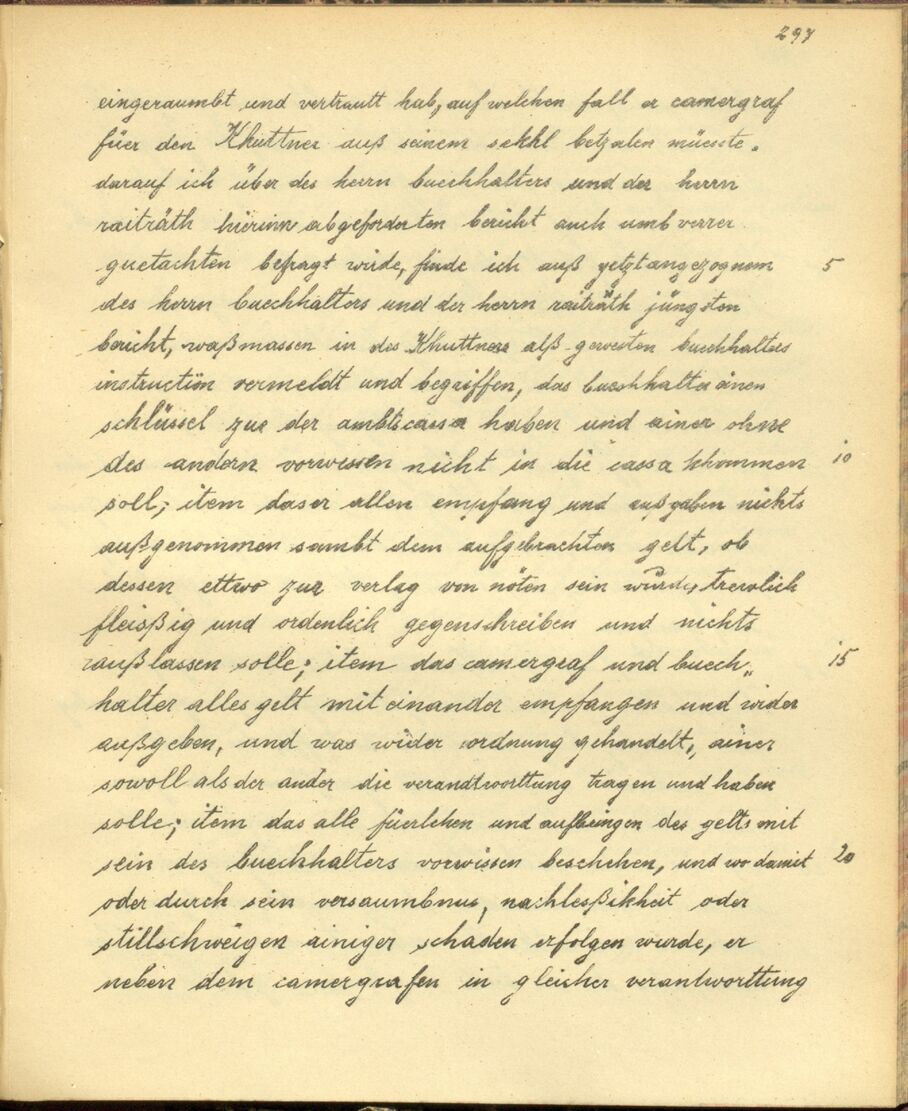 297
eingeraumbt und vertrautt hab, auf welchen fall er camergraf
füer den Khuttner auß seinem sekhl betzalen müeste.
darauf ich über des herrn buechhalters und der herrn
raiträth hierinn abgeforderten bericht auch umb verrer
guetachten befragt wirde, finde ich auß yetztangezognem 5
des herrn buechhalters und der herrn raiträth jüngsten
bericht, waßmassen in des Khuttners alß gewesten buechhalters
instruction vermeldt und begriffen, das buechhalter ainen
schlüssel zue der ambtscassa haben und ainer ohne
des andern vorwissen nicht in die cassa khommen 10
soll; item das er allen empfang und außgaben nichts
außgenommen sambt dem aufgebrachten gelt, ob
dessen ettwo zur verlag von nöten sein wurde, trewlich
fleisßig und ordenlich gegenschreiben und nichts
außlassen solle; item das camergraf und buech„ 15
halter alles gelt mit einander empfangen und wider
außgeben, und was wider ordnung gehandelt, ainer
sowoll als der ander die verandtworttung tragen und haben
solle; item das alle füerlehen und aufbringen des gelts mit
sein des buechhalters vorwissen beschehen, und wo damit 20
oder durch sein versaumbnus, nachlesßikheit oder
stillschweigen ainiger schaden erfolgen wurde, er
neben dem camergrafen in gleicher verantworttung